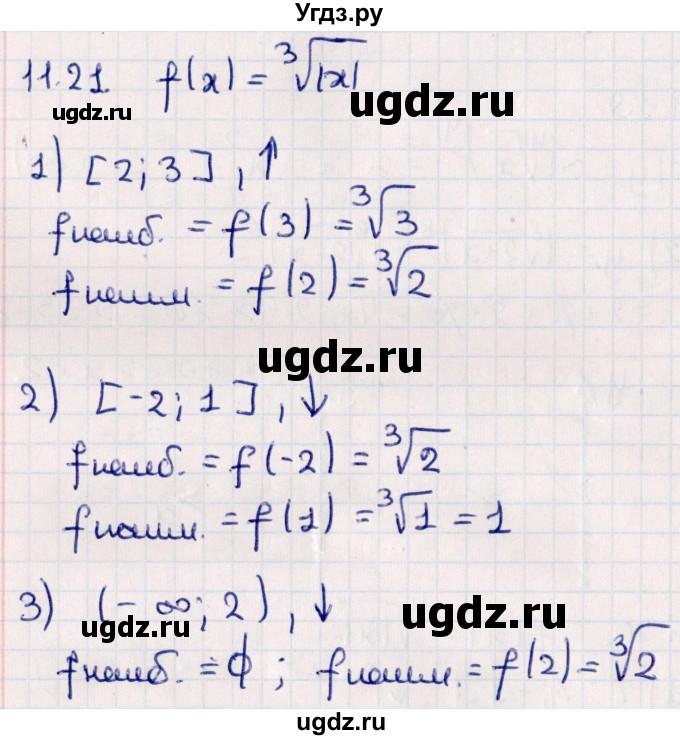 Угдз.ру
11.21. f(x) = ∛|x|
ugdz.ru
ugdz.ru
1) [2; 3], ↑
fнаиб. = f(3) = ∛3
fнаим. = f(2) = ∛2
ugdz.ru
2) [-2; 1], ↓
fнаиб. = f(-2) = ∛2
fнаим. = f(1) = ∛1 = 1
3) (-∞; 2), ↓
ugdz.ru
ugdz.ru
fнаиб. = ϕ; fнаим. = f(2) = ∛2
ugdz.ru